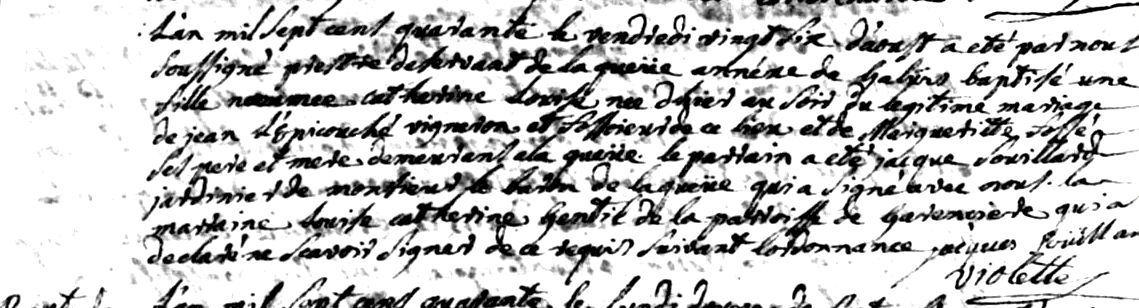 L'an mil sept cens quarante le vendredi vingt six d'aoust a eté par nous
soussigné prestre deservant de la queüe annéxe de Galuis baptisé une
fille nommée catherine Louise née d'hier au soir du legitime mariage
de jean L'Epicouché vigneron et fossoieur de ce lieu et de Margueritte fossé
ses pere et mere demeurans a la queüe le parrain a eté jacque Souillard
jardinier de monsieur le baron de la queüe qui a signé avec nous la
marraine Louise catherine Gentil de la paroisse de Garenciere qui a
declaré ne scavoir signer de ce requis suivant l'ordonnance jacques Souillar
Violette
L'an mil sept cens quarante le lundi